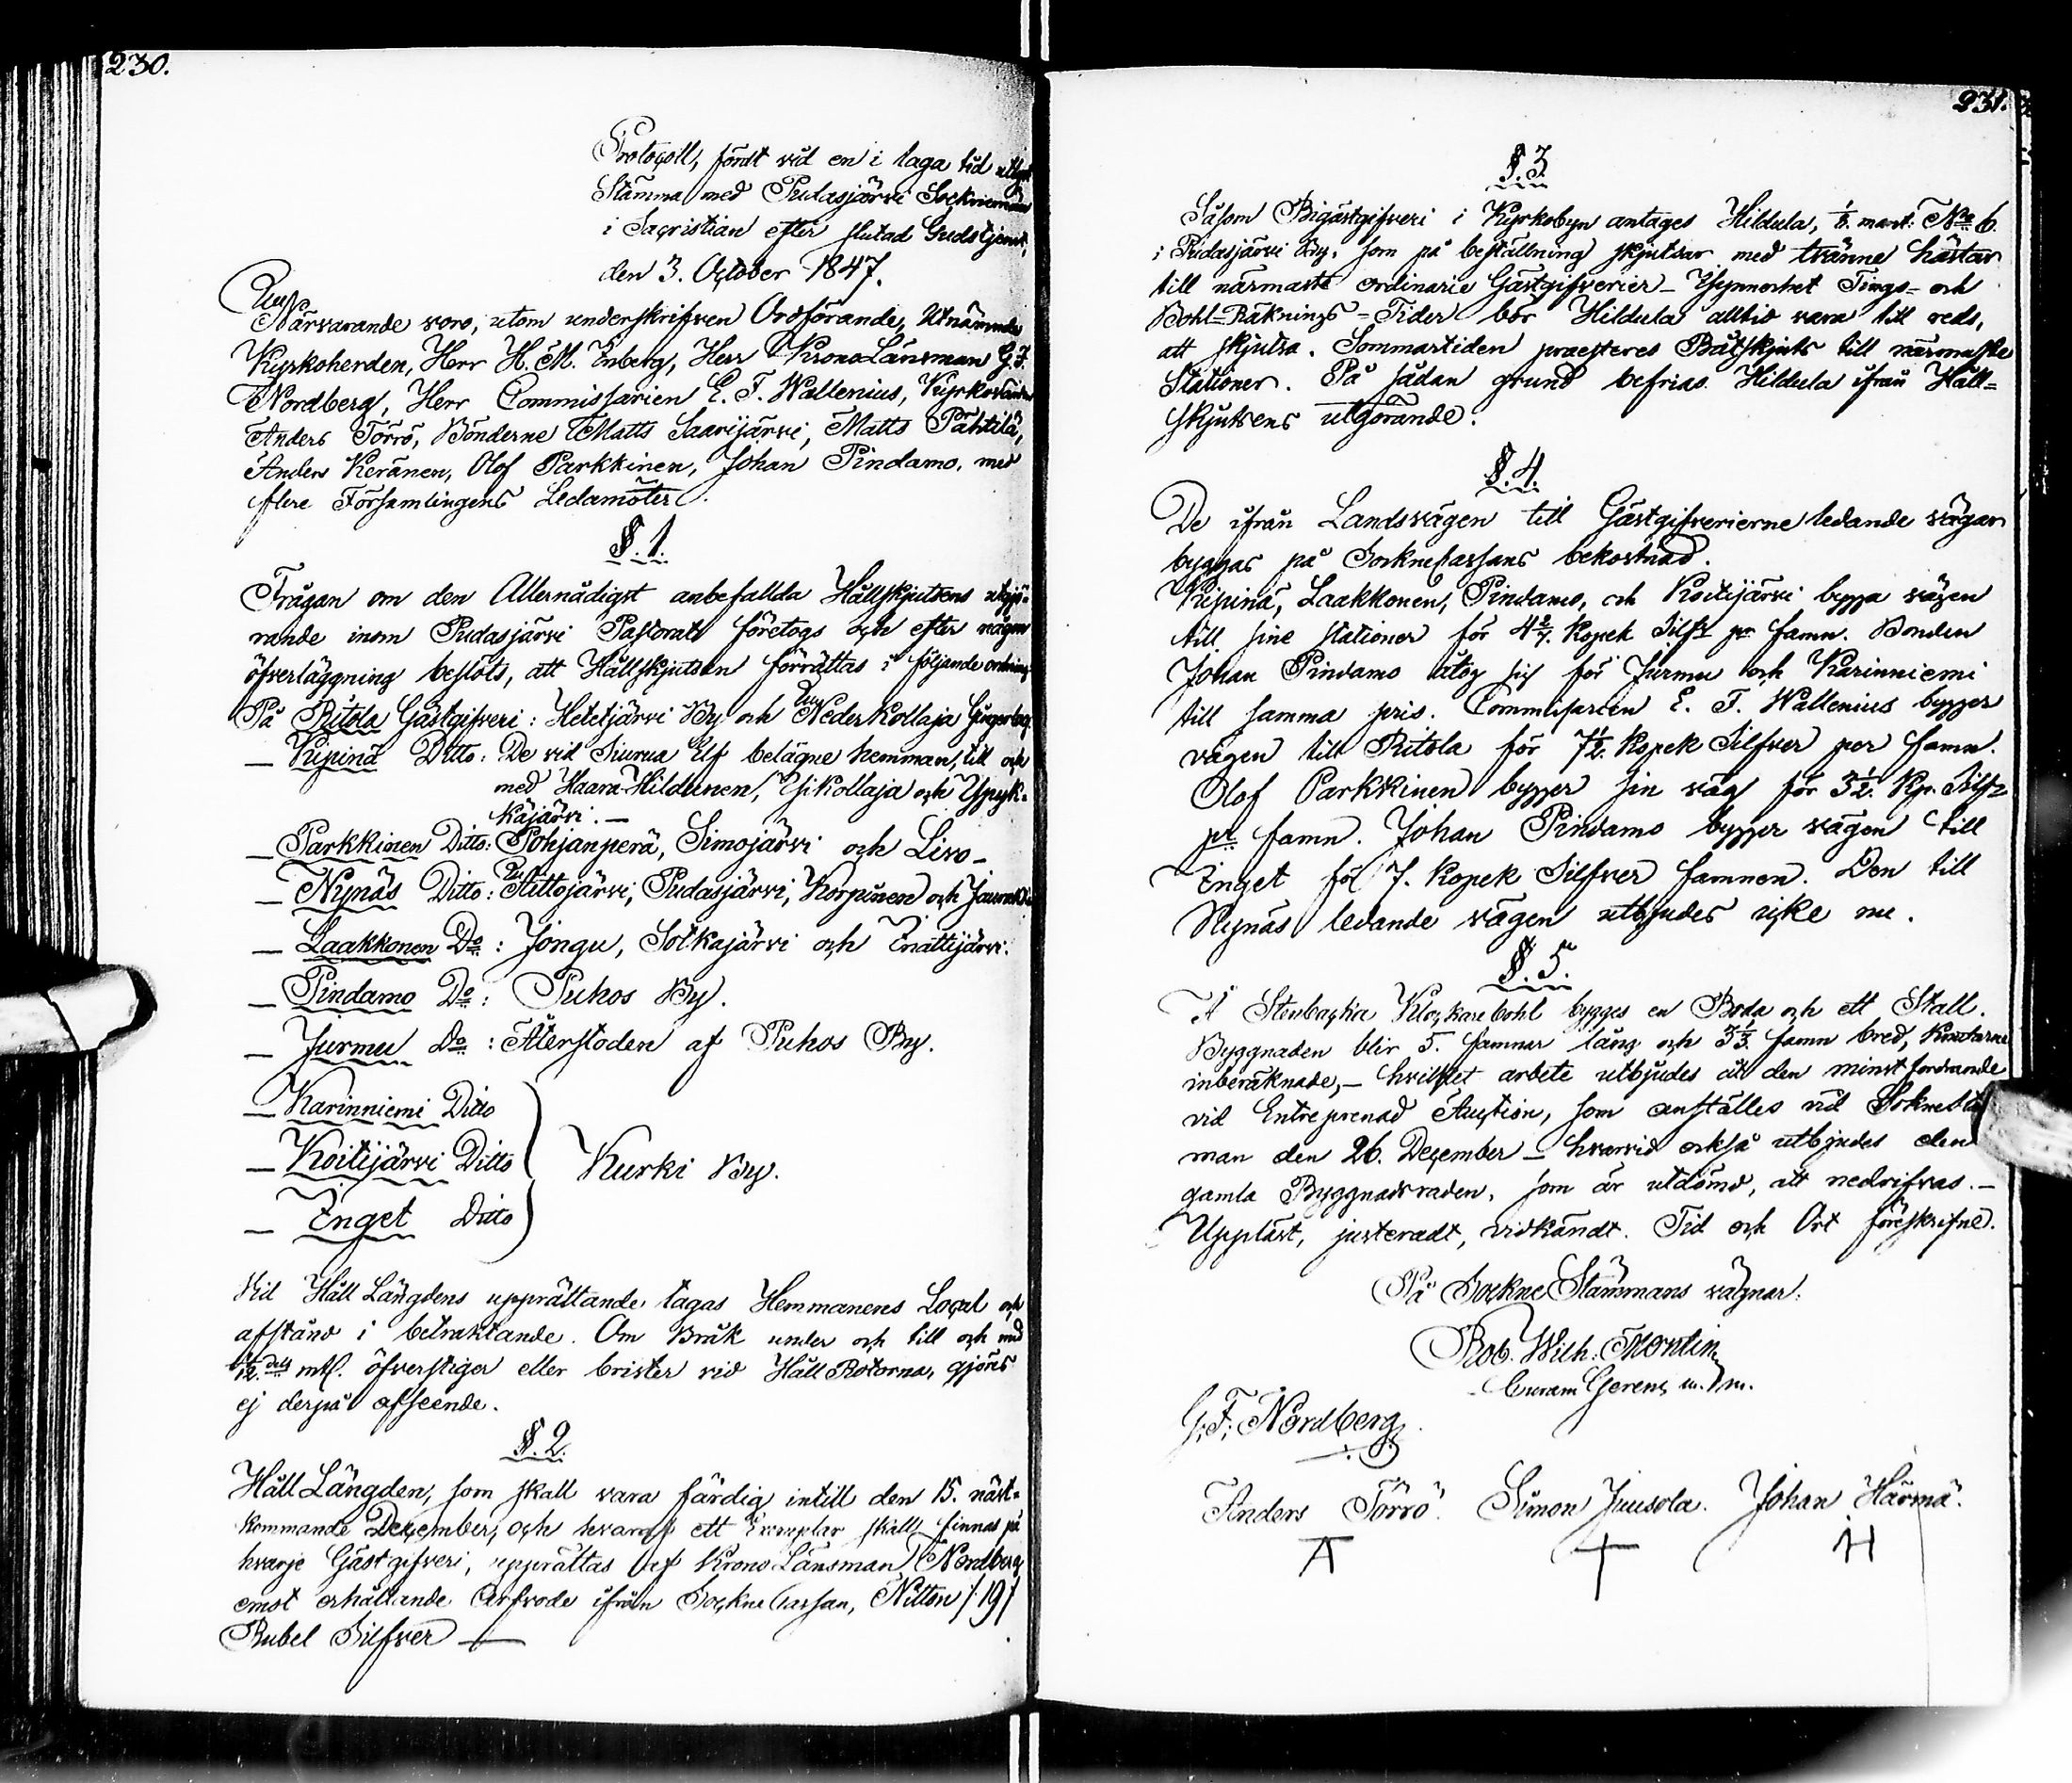 230.
Protocoll, fördt vid en i laga tid
Stämma med Pudasjärvi Socknemän
i Sacristian efter slutad Gudstjenst,
den 3. October 1847.
Närvarande voro, utom underskrifven Ordförande, Utnämnde
Kyrkoherden, Herr H. M. Enberg, Herr Krono Länsman G. F.
Nordberg, Herr Commissarien E. F. Wallenius, Kyrkovärden
Anders Törrö, Bönderne Matts Saarijärvi, Matts Pähtilä,
Anders Keränen, Olof Parkkinen, Johan Pindamo, med
flere Församlingens Ledamöter.
§. 1.
Frågan om den Allernådigst anbefallda Hållskjutsens utgjö-
rande inom Pudasjärvi Pastorat företogs och efter någon
öfverläggning beslöts, att Hållskjutsen förrättas i följande ordning
På Ritola Gästgifveri: Hetejärvi By och Neder Kollaja
— Kipinä Ditto: De vid Siurua Elf belägne hemman, till och
med Haara-Hildunen, Yli Kollaja och Ypyk-
käjärvi. —
— Parkkinen Ditto: Pohjanperä, Simojärvi och Livo —
— Nynäs Ditto: Aittojärvi, Pudasjärvi, Korpinen och
— Laakkonen Do: Jongu, Sotkajärvi och Inättijärvi.
— Pindamo Do: Puhos By.
— Jurmu Do: Återstoden af Puhos By.
— Karinniemi Ditto
— Koitijärvi Ditto Kurki By.
— Enget Ditto
Vid Håll Längdens upprättande tagas Hemmanens Local och
afstånd i betraktande. Om Bråk under och till och med
1/12 dels mtl. öfverstiger eller brister vid Håll Rotorna, gjöres
ej derpå afseende.
§. 2.
Håll Längden, som skall vara färdig intill den 15. näst-
kommande December, och hvaraf ett Exemplar skall finnas på
hvarje Gästgifveri, upprättas af Krono Länsman Nordberg
emot erhållande Arfvode ifrån Sockne Cassan, Nitton /19/
Rubel Silfver —
231.
§. 3.
Såsom Bigästgifveri i Kyrkobyn antages Hildula, 1/8. mant. No 6.
i Pudasjärvi By, som på beställning skjutsar med tvänne hästar
till närmaste ordinarie Gästgifverier — Ting- och
Bohl-Räknings-Tider bör Hildula alltid vara till reds,
att skjutsa. Sommartiden praesteres Båtskjuts till närmaste
Stationer. På sådan grund befrias Hildula ifrån Håll-
skjutsens utgörande.
§. 4.
De ifrån Landsvägen till Gästgifverierne ledande vägar
byggas på Socknecassans bekostnad.
Kipinä, Laakkonen, Pindamo, och Koitijärvi bygga vägen
till sine stationer för 4 2/7. Kopek Silfr pr famn. Bonden
Johan Pindamo åtog sig för Jurmu och Karinniemi
till samma pris. Commissarien E. F. Wallenius bygger
vägen till Ritola för 7 1/2. Kopek Silfver per famn.
Olof Parkkinen bygger sin väg för 3 1/2. Kp. Silfr
pr famn. Johan Pindamo bygger vägen till
Enget för 7. Kopek Silfver famnen. Den till
Nynäs ledande vägen utbjudes icke nu.
§. 5.
Å Stenbacka Klockarebohl bygges en Boda och ett Stall.
Byggnaden blir 5. famnar lång och 3 1/3. famn bred, Knutarne
inberäknade, — hvilket arbete utbjudes åt den minst fordrande
vid Entreprenad Auction, som anställes vid
man den 26. December — hvarvid också utbjudes den
gamla Byggnadsraden, som är utdömd, att nedrifvas. —
Uppläst, justeradt, vidkändt. Tid och Ort föreskrifne.
På Sockne Stämmans vägnar:
Rob. Wilh: Montin,
Curam Gerens m. m.
G. F. Nordberg.
Anders Törrö. Simon Juusola. Johan Härmä.